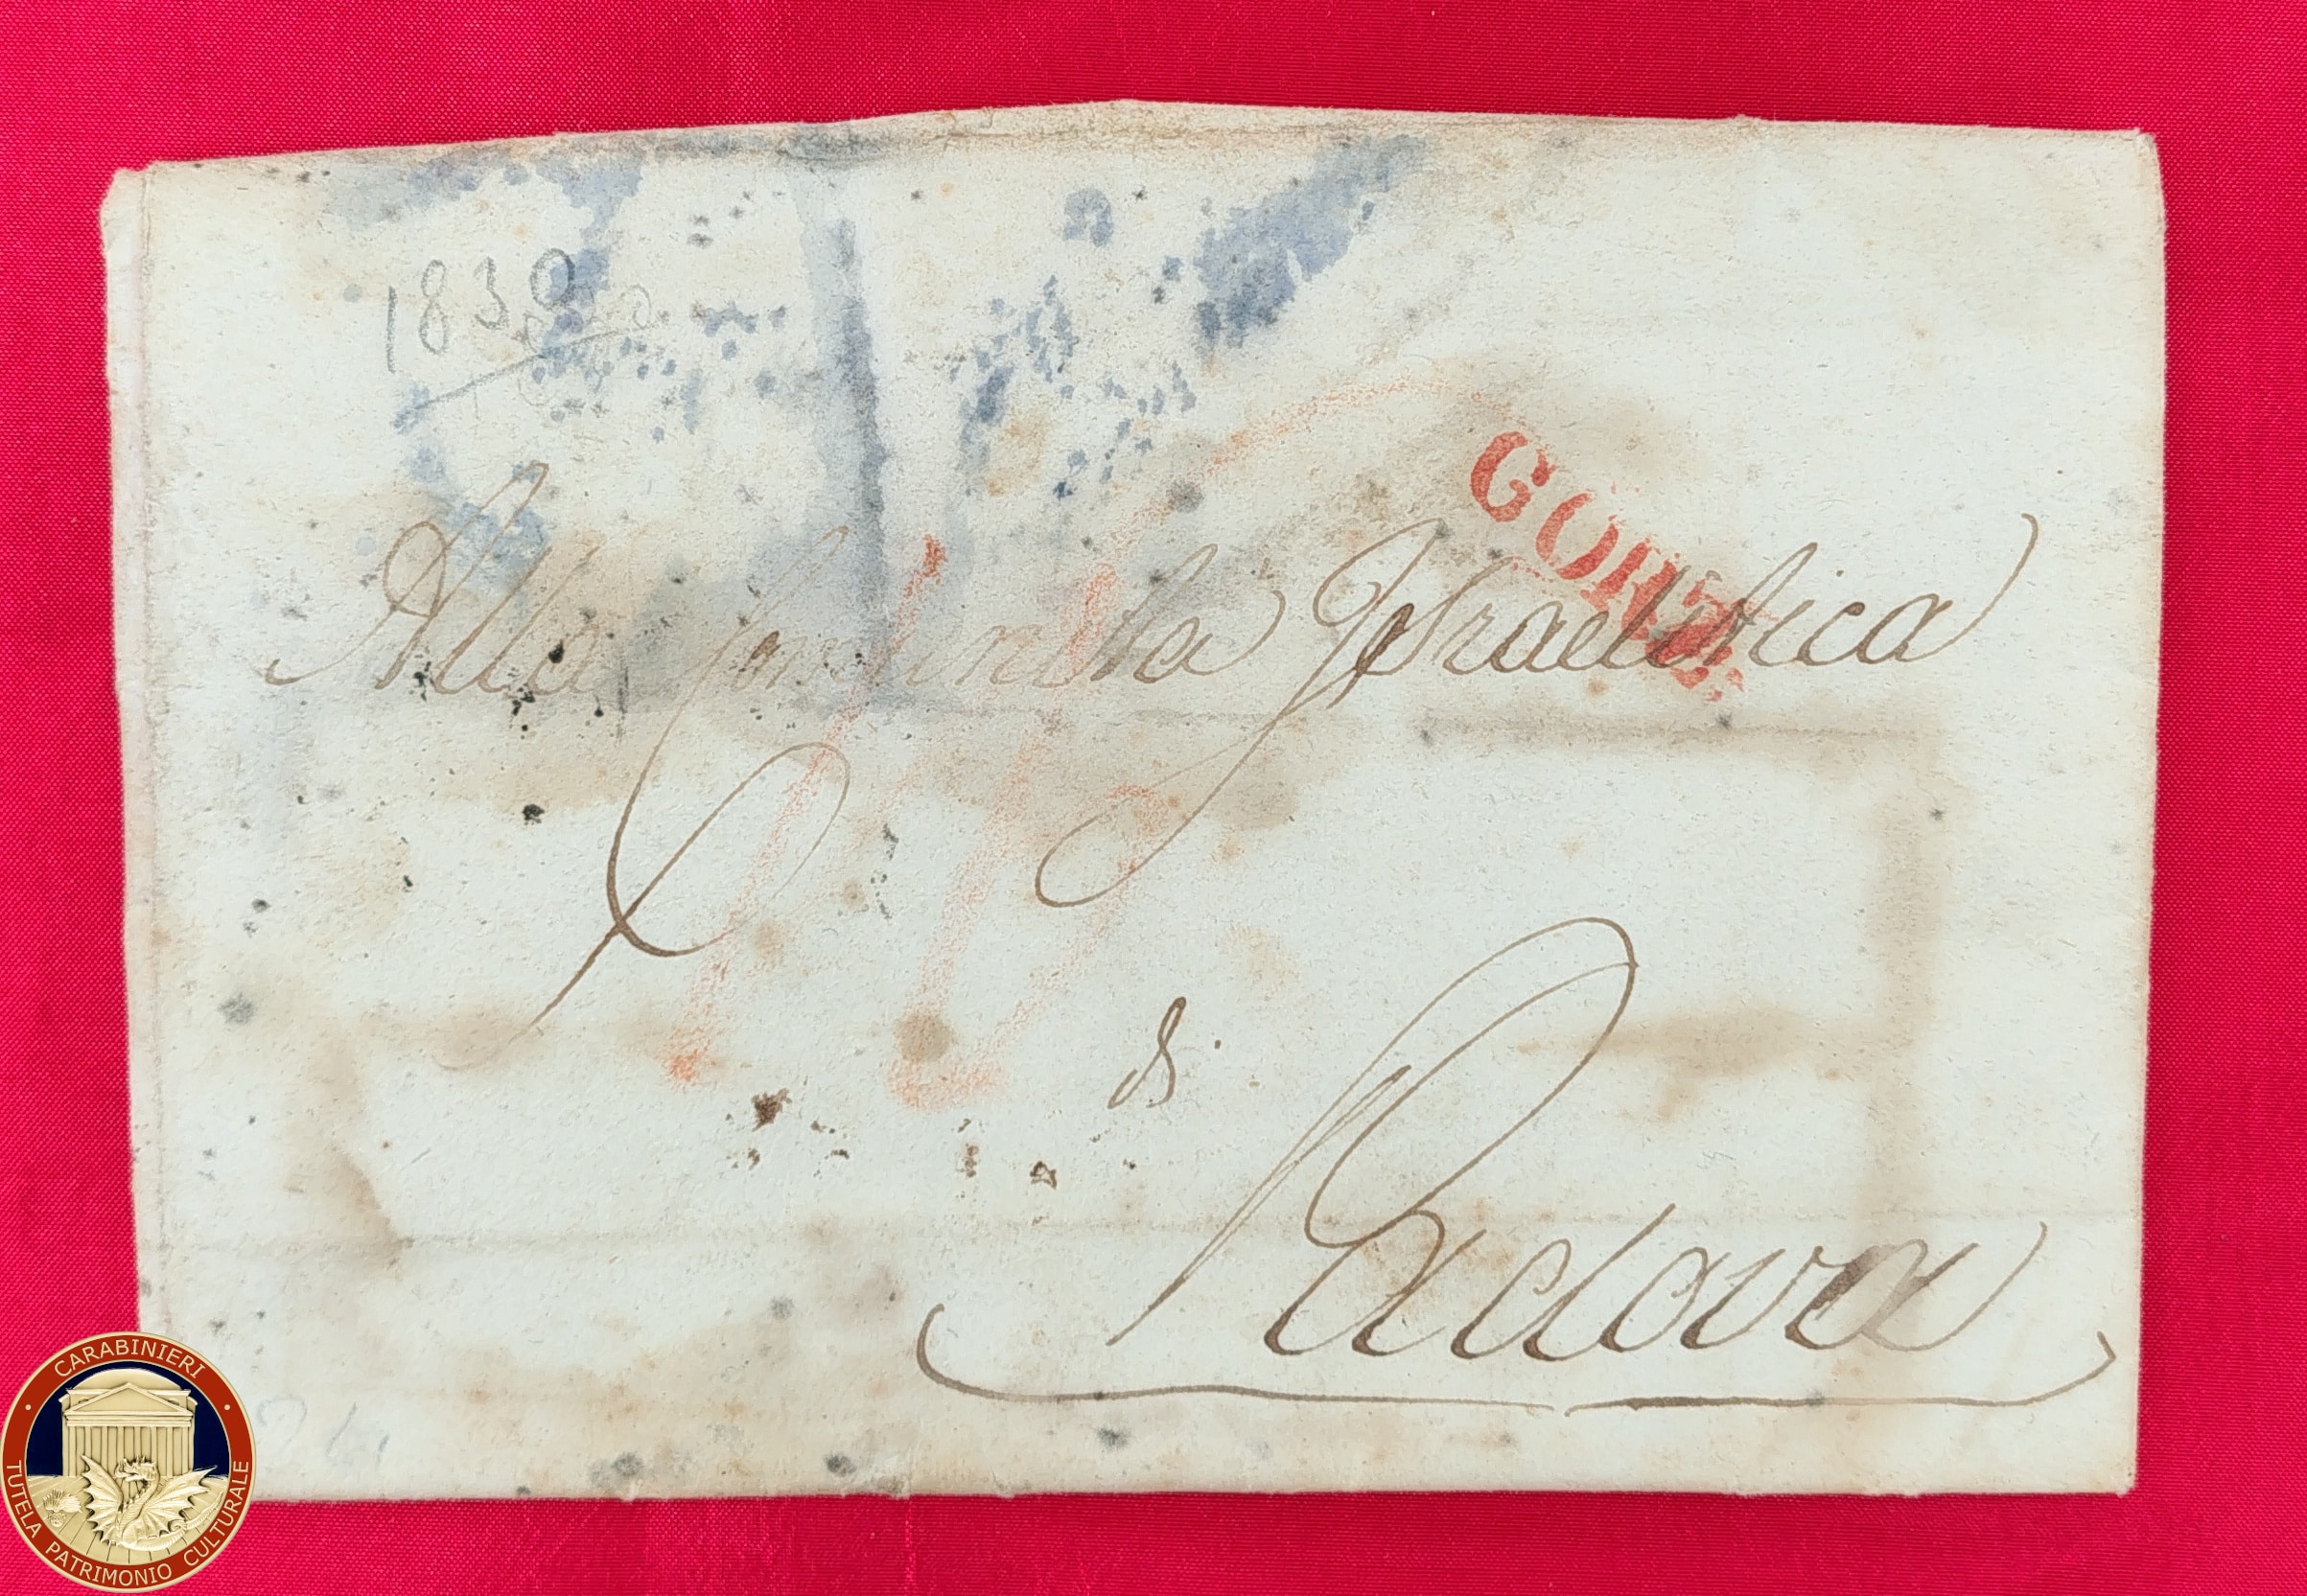 1830
GORZ.
Alla Comunita Israelitica
di
Padova
CARABINIERI
TUTELA PATRIMONIO CULTURALE